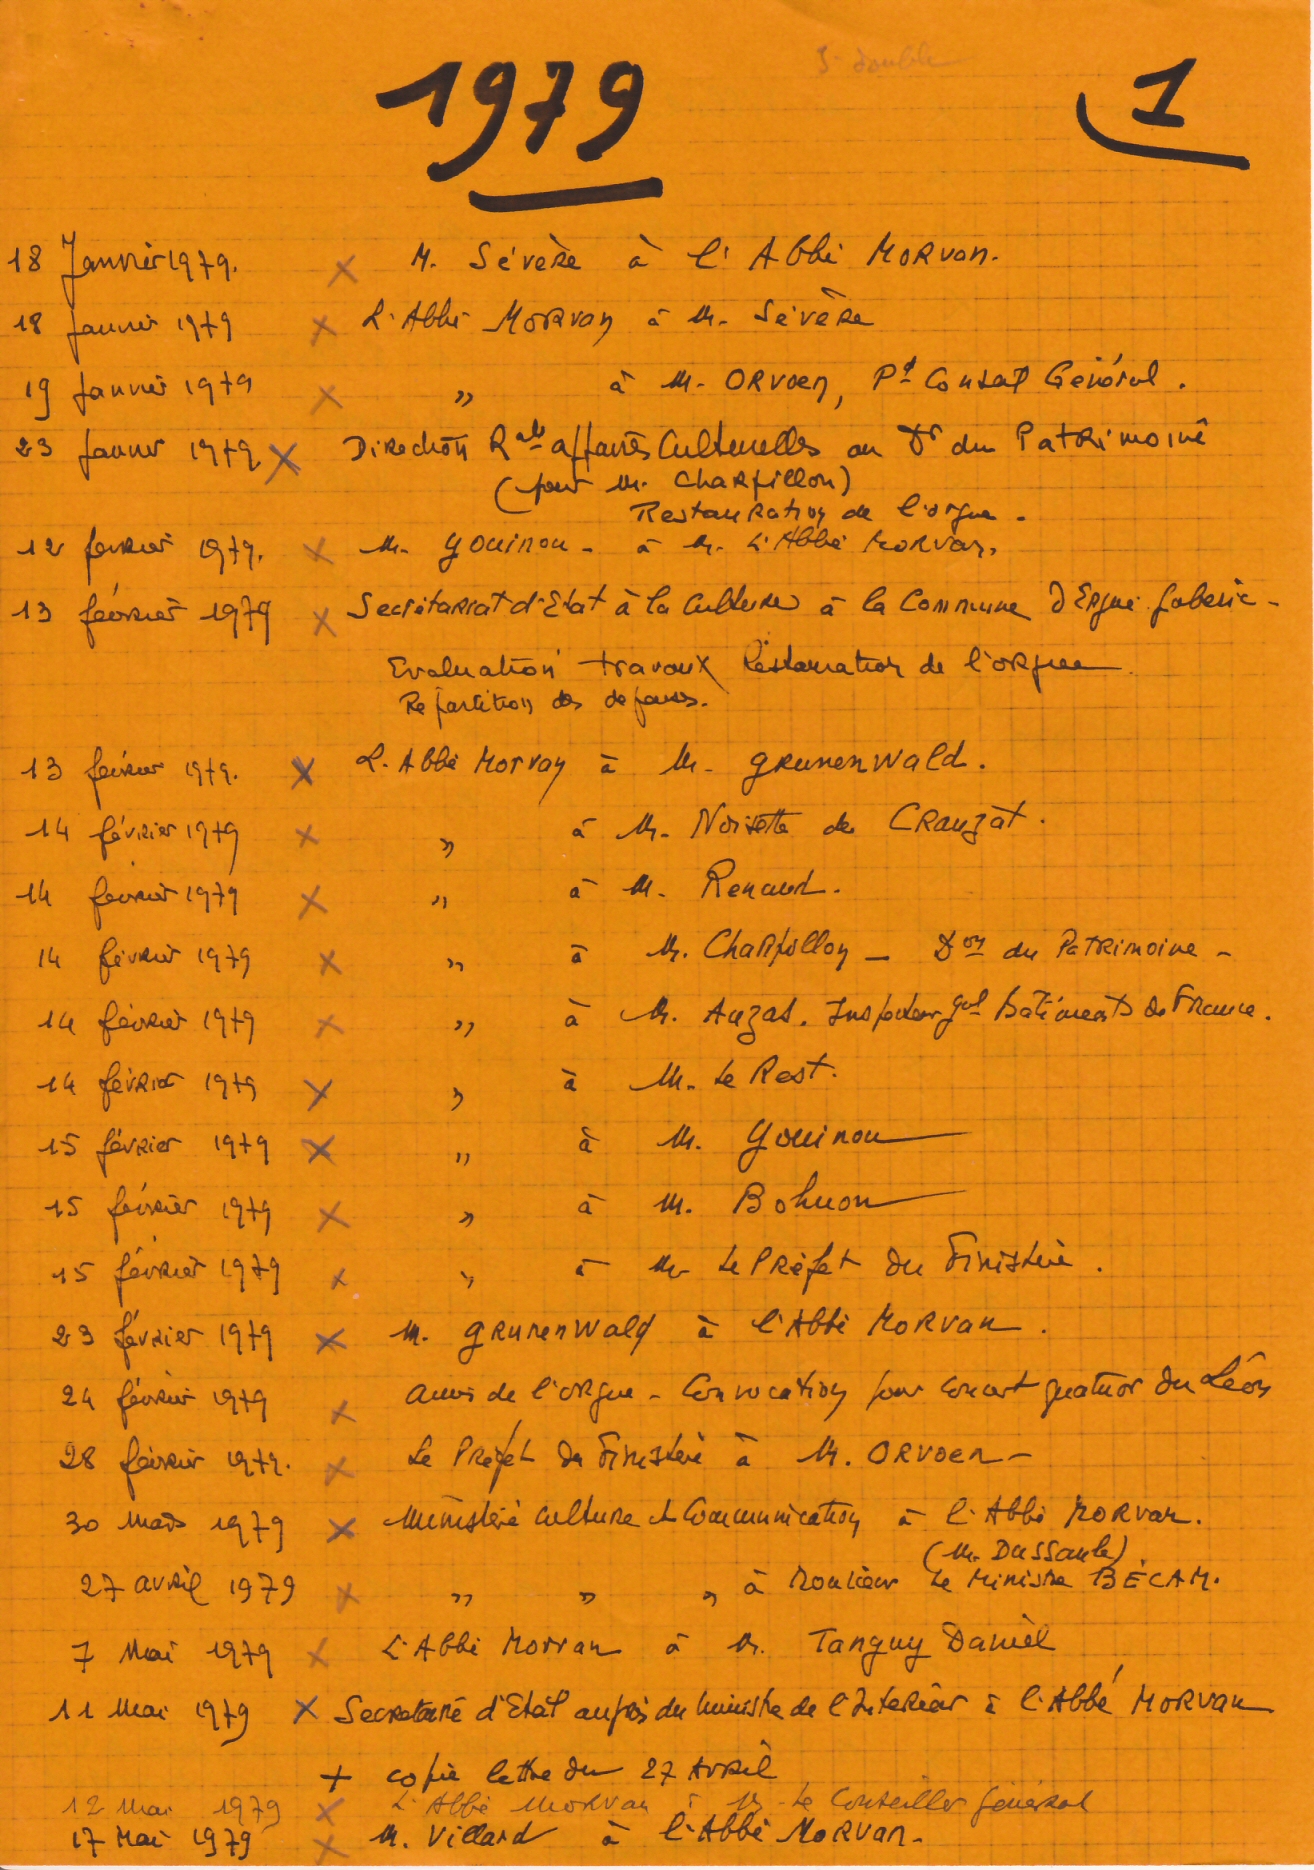 1979
1
18 Janvier 1979. × M. Sévère à l'Abbé MORVAN.
18 Janvier 1979 × L'Abbé MORVAN à M. Sévère
19 Janvier 1979 × " à M. ORVOEN, Pdt Conseil Général.
23 Janvier 1979 × Direction Rale affaires Culturelles au Dr du Patrimoine
(pour M. Charpillon)
Restauration de l'orgue.
12 février 1979. × M. Gouinou - à M. L'Abbé MORVAN.
13 février 1979 × Secrétariat d'Etat à la Culture à la Commune d'Ergué Gabéric -
Evaluation travaux Restauration de l'orgue
Répartition des dépenses.
13 février 1979. × L'Abbé Morvan à M. GRUNENWALD.
14 février 1979 × " à M. Noisette de CRAUZAT.
14 février 1979 × " à M. Renaud.
14 février 1979 × " à M. Charpillon - Don du Patrimoine -
14 février 1979 × " à M. Auzas. Inspecteur gal Bâtiments de France.
14 février 1979 × " à M. Le Rest.
15 février 1979 × " à M. Gouinou
15 février 1979 × " à M. Bohuon
15 février 1979 × " à M. Le Préfet du Finistère.
23 février 1979 × M. GRUNENWALD à l'Abbé MORVAN.
24 février 1979 × Amis de l'orgue - Convocation pour concert quatuor du Léon
28 février 1979. × Le Préfet du Finistère à M. ORVOEN -
30 mars 1979 × Ministère Culture et Communication à l'Abbé MORVAN.
(M. Dussaule)
27 avril 1979 × " " " à Monsieur Le Ministre BÉCAM.
7 Mai 1979 × L'Abbé Morvan à M. Tanguy Daniel
11 Mai 1979 × Secrétaire d'Etat auprès du ministre de l'Intérieur à l'Abbé MORVAN
+ copie lettre du 27 Avril
12 Mai 1979 × L'Abbé MORVAN à M. Le Conseiller Général
17 Mai 1979 × M. Villard à l'Abbé MORVAN.